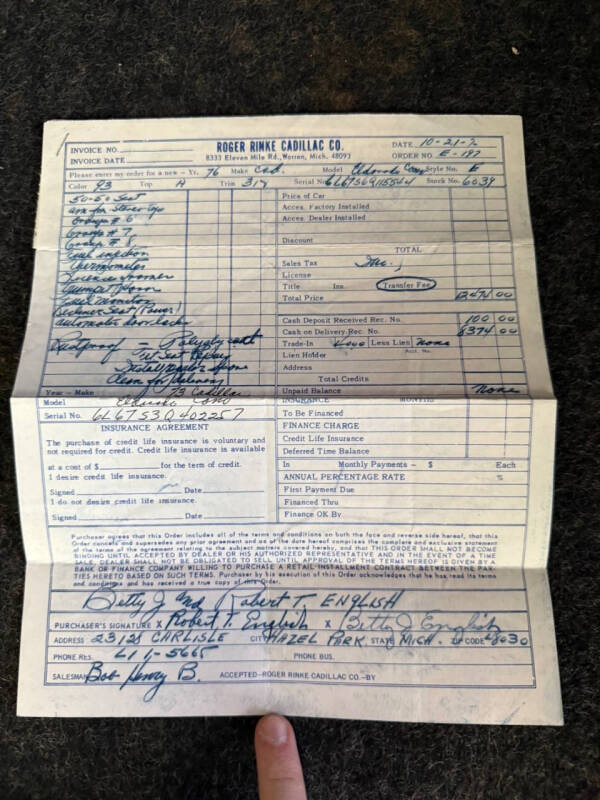 INVOICE NO.
ROGER RINKE CADILLAC CO.
DATE 10-21-
INVOICE DATE
8333 Eleven Mile Rd., Warren, Mich. 48093
ORDER NO. E-197
Please enter my order for a new - Yr. 76 Make Cad. Model Eldorado Conv Style No. E
Color 93 Top A Trim Serial No. Stock No. 6039
50-50 Seat
Price of Car
Acces. Factory Installed
Group # 6
Acces. Dealer Installed
Group # 7
Group # 8
Discount
Fuel injection
TOTAL
Sales Tax Inc.
License
Trumpet Horn
Title Ins. Transfer Fee
Fuel monitor
Total Price 00
Recliner Seat (Power)
automatic door locks
Cash Deposit Received Rec. No. 100 00
Cash on Delivery Rec. No. 6374 00
Rustproof -
Trade-In Less Lien None
Acct. No.
Lien Holder
Address
Clean for delivery
Total Credits
Year - Make 73 Cadillac
Unpaid Balance None
Model Eldorado Conv
INSURANCE MONTHS
Serial No. 6L67S3Q402257
To Be Financed
INSURANCE AGREEMENT
FINANCE CHARGE
The purchase of credit life insurance is voluntary and
not required for credit. Credit life insurance is available
Credit Life Insurance
Deferred Time Balance
at a cost of $ for the term of credit.
In Monthly Payments - $ Each
I desire credit life insurance.
ANNUAL PERCENTAGE RATE %
Signed Date
First Payment Due
I do not desire credit life insurance.
Financed Thru
Signed Date
Finance OK By
Purchaser agrees that this Order includes all of the terms and conditions on both the face and reverse side hereof, that this
Order cancels and supersedes any prior agreement and as of the date hereof comprises the complete and exclusive statement
of the terms of the agreement relating to the subject matters covered hereby, and that THIS ORDER SHALL NOT BECOME
BINDING UNTIL ACCEPTED BY DEALER OR HIS AUTHORIZED REPRESENTATIVE AND IN THE EVENT OF A TIME
SALE, DEALER SHALL NOT BE OBLIGATED TO SELL UNTIL APPROVAL OF THE TERMS HEREOF IS GIVEN BY A
BANK OR FINANCE COMPANY WILLING TO PURCHASE A RETAIL INSTALLMENT CONTRACT BETWEEN THE PAR-
TIES HERETO BASED ON SUCH TERMS. Purchaser by his execution of this Order acknowledges that he has read its terms
and conditions and has received a true copy of this Order.
Betty J and Robert T. ENGLISH
PURCHASER'S SIGNATURE X Robert T. English X Betty J English
ADDRESS 23121 CARLISLE CITY HAZEL PARK, STATE MICH. ZIP CODE 48030
PHONE RES. LI 1-5665 PHONE BUS.
SALESMAN Bob Henry B. ACCEPTED-ROGER RINKE CADILLAC CO.-BY